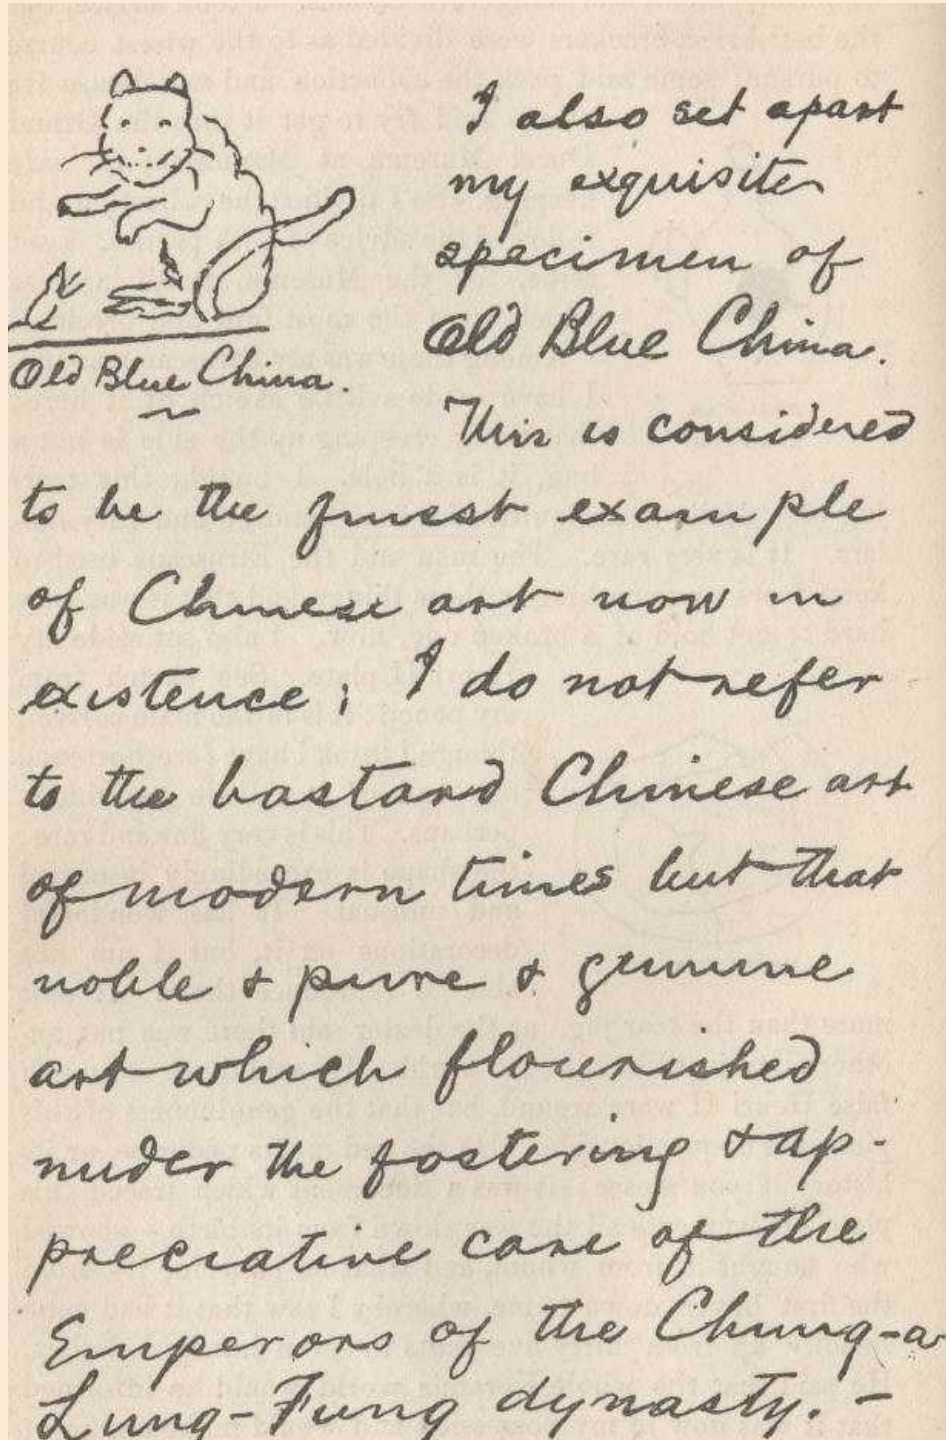 I also set apart
my exquisite
specimen of
Old Blue China.
Old Blue China.
This is considered
to be the finest example
of Chinese art now in
existence; I do not refer
to the bastard Chinese art
of modern times but that
noble & pure & genuine
art which flourished
under the fostering & ap-
preciative care of the
Emperors of the Chung-a-
Lung-Fung dynasty. –